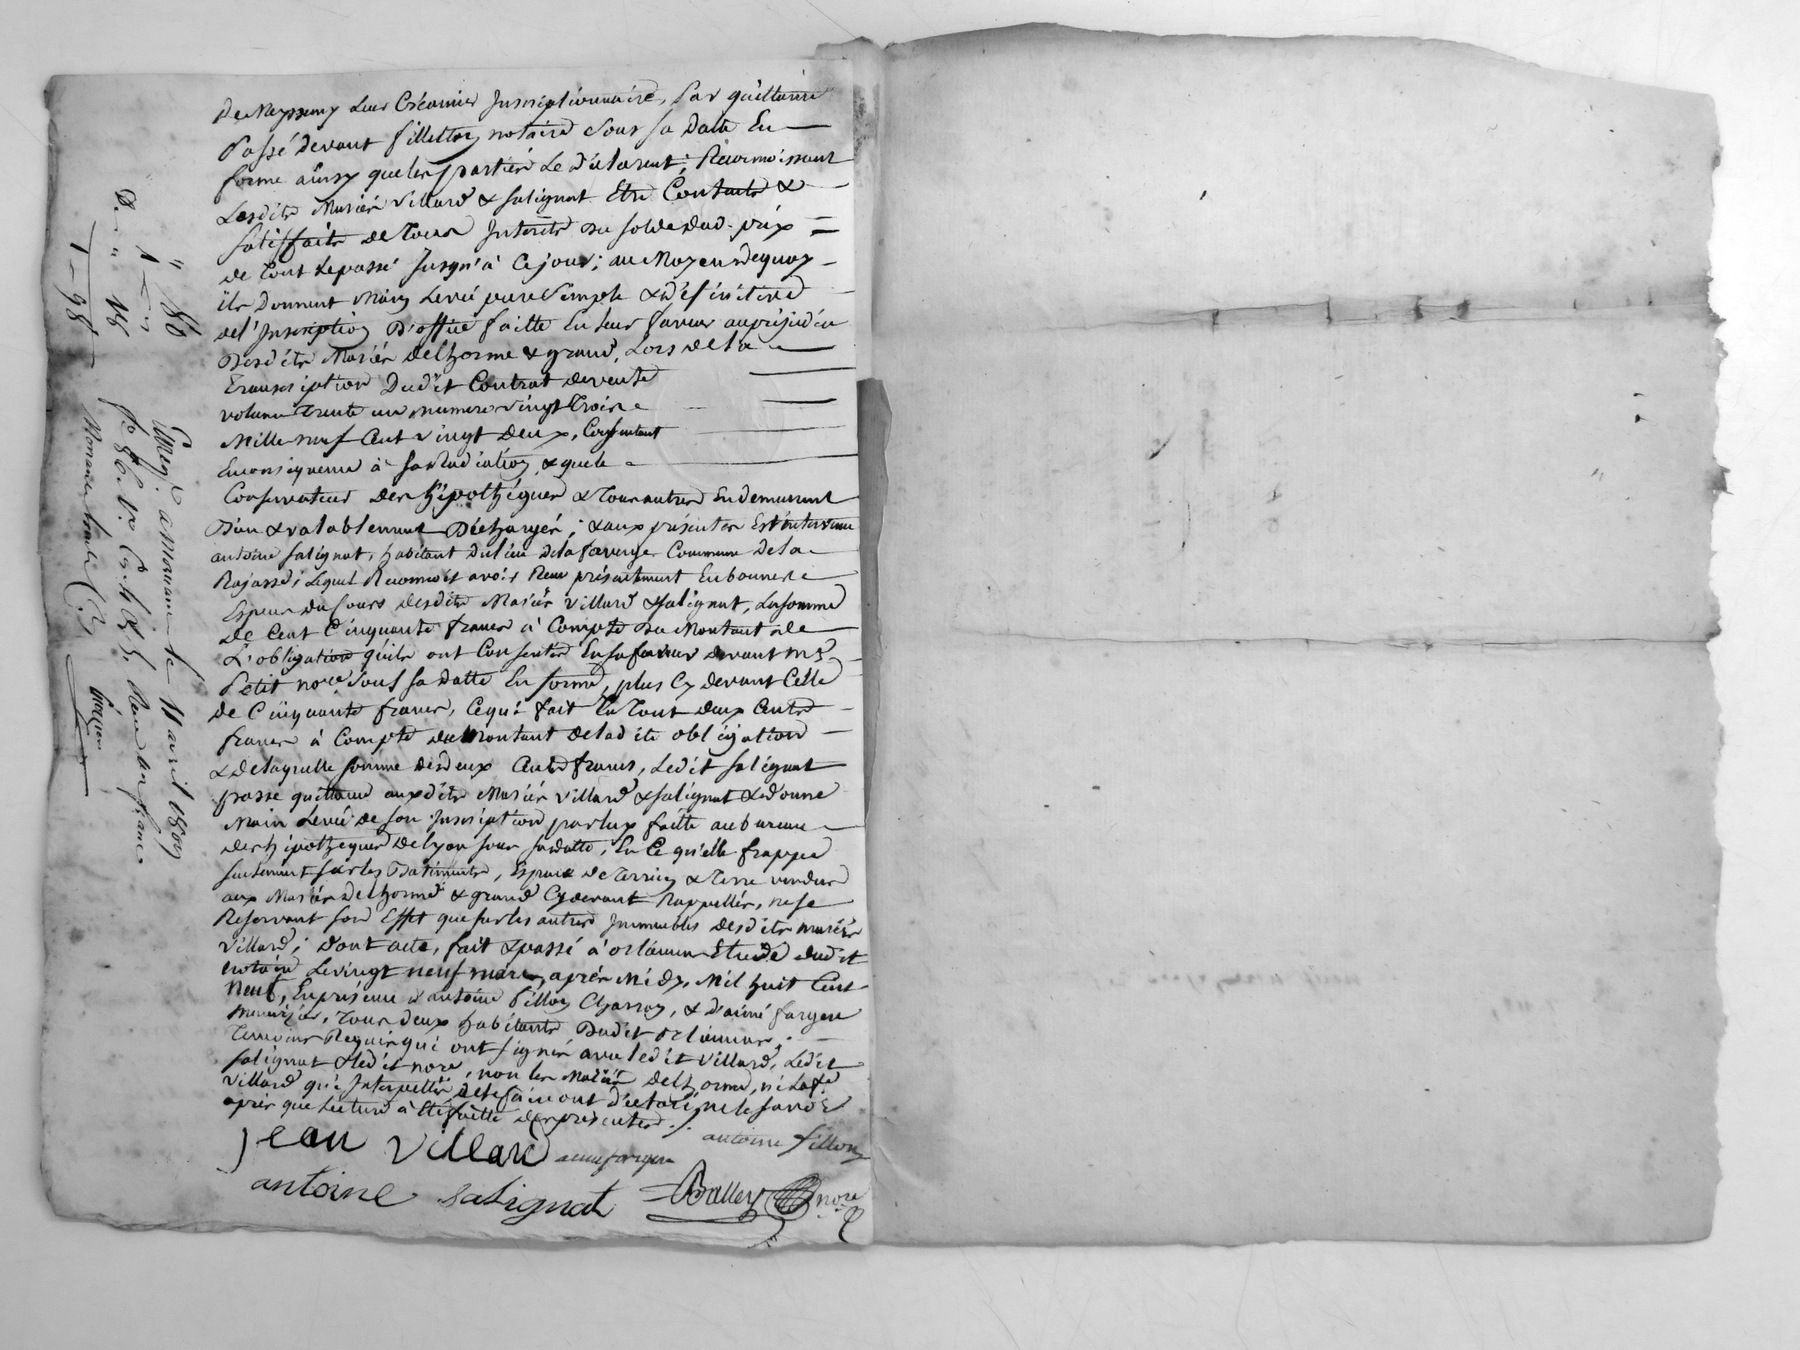 De Meyssimy Leur Créancier Inscriptionnaire, par quittance
passé devant fillettoz notaire sous sa date En
forme ainsy que les parties Le déclarent; Reconnoissant
Lesdits Mariés Villard & salignat Etre Contents &
satisfaits de Tous Interets du solde dud. prix
de Tout Le passé Jusqu'à Ce jour; au Moyen de quoy
ils Donnent Main Levée pure Simple & définitive
de l'Inscription D'office faitte En leur faveur au préjudice
Desdits Mariés delhorme & grand, Lors de la
Transcription Dudit Contrat de vente
volume Trente un numero vingt Trois
Mille neuf Cent vingt Deux, Consentant
En conséquence à sa Radiation & que le
Conservateur Des hipothéques & Tous autres En demeurent
Bien & valablement Déchargés; & aux présentes Est intervenu
antoine salignat, habitant du lieu de la faverge Commune de la
Rajasse, Lequel Reconnoit avoir Reçu présentement En bonnes
Especes du Cours desdits Mariés villard & salignat, La somme
De Cent Cinquante francs à Compte du Montant de
L'obligation qu'ils ont Consentie En sa faveur devant Me
Petit nore. sous sa datte En forme, plus Cy devant Celle
de Cinquante francs, Ce qui fait En Tout deux Cents
francs à Compte du Montant de ladite obligation
& de laquelle somme de deux Cents francs, Ledit salignat
passe quittance auxdits Mariés villard & salignat & donne
Main Levée de son Inscription par luy faitte au bureau
des hipotheques de Lyon sous sa datte, En Ce qu'elle frappe
seulement sur les Batiments, Espace de Terrein & Terre vendus
aux Mariés delhorme & grand Cy devant Rappellés, ne se
Reservant son Effet que sur les autres Immeubles desdits mariés
villard; dont acte, fait & passé à orliénas Etude dudit
notaire Le vingt neuf mars, après Midy, Mil huit Cent
Neuf, En présence d'antoine fillon Charron, & d'aimé fargere
Menuizier, Tous deux habitants Dudit orliénas,
Temoins Requis qui ont signé avec ledit villard, Ledit
salignat & ledit nore, non les Mariés delhorme, ni la fe
villard qui Interpellés de le faire ont déclaré ne le savoir
après que Lecture à Eté faitte des présentes ./.
Jean Villard aimé fargere antoine fillon
antoine Salignat Balley nore
Enreg. à Mornant le 11 avril 1809